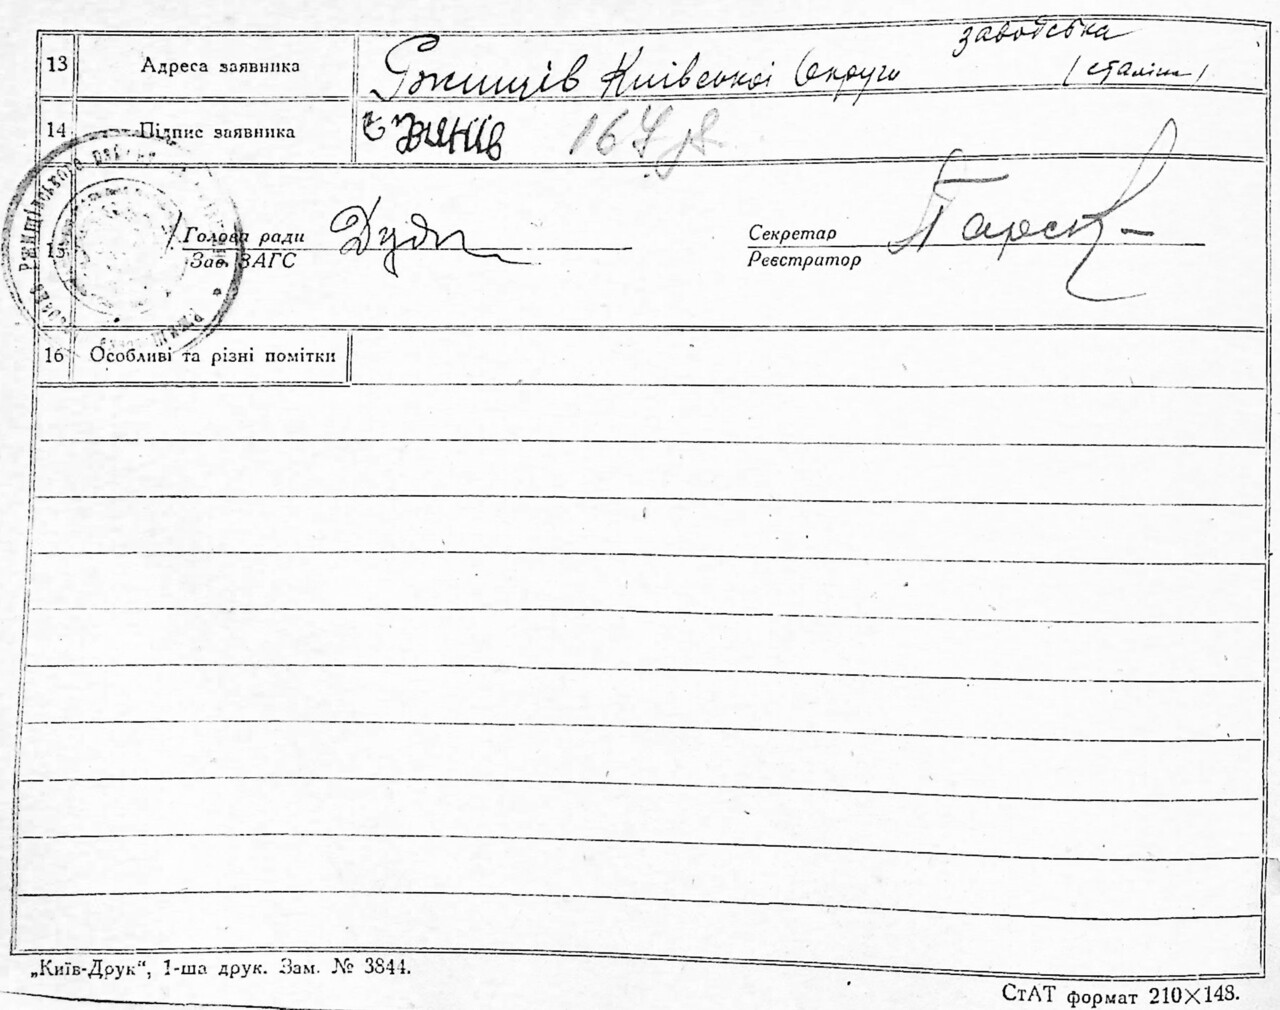 заводська
13 Адреса заявника Ржищів Київської Округи (сталіна)
14 Підпис заявника
Голова ради
15 Зав. ЗАГС
Секретар
Реєстратор
16 Особливі та різні помітки
„Київ-Друк“, 1-ша друк. Зам. № 3844.
СтАТ формат 210×148.